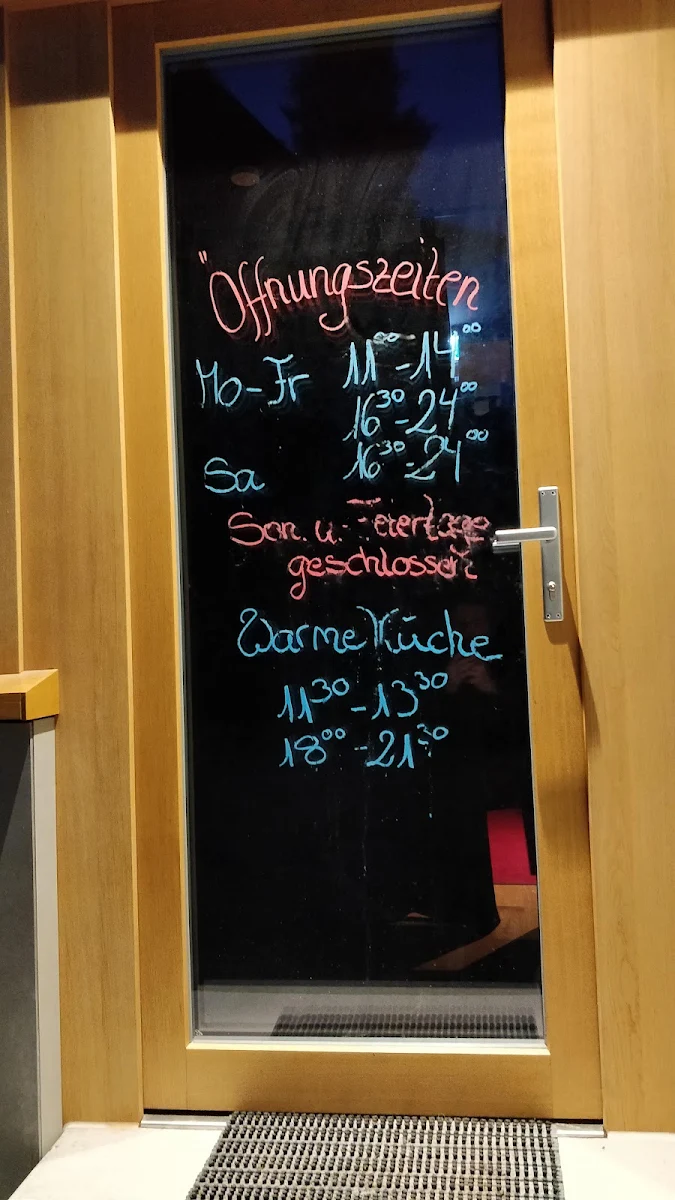 Öffnungszeiten
Mo-Fr 11⁰⁰-14⁰⁰
16³⁰-24⁰⁰
Sa 16³⁰-24⁰⁰
Son. u. Feiertage
geschlossen
Warme Küche
11³⁰-13³⁰
18⁰⁰-21³⁰